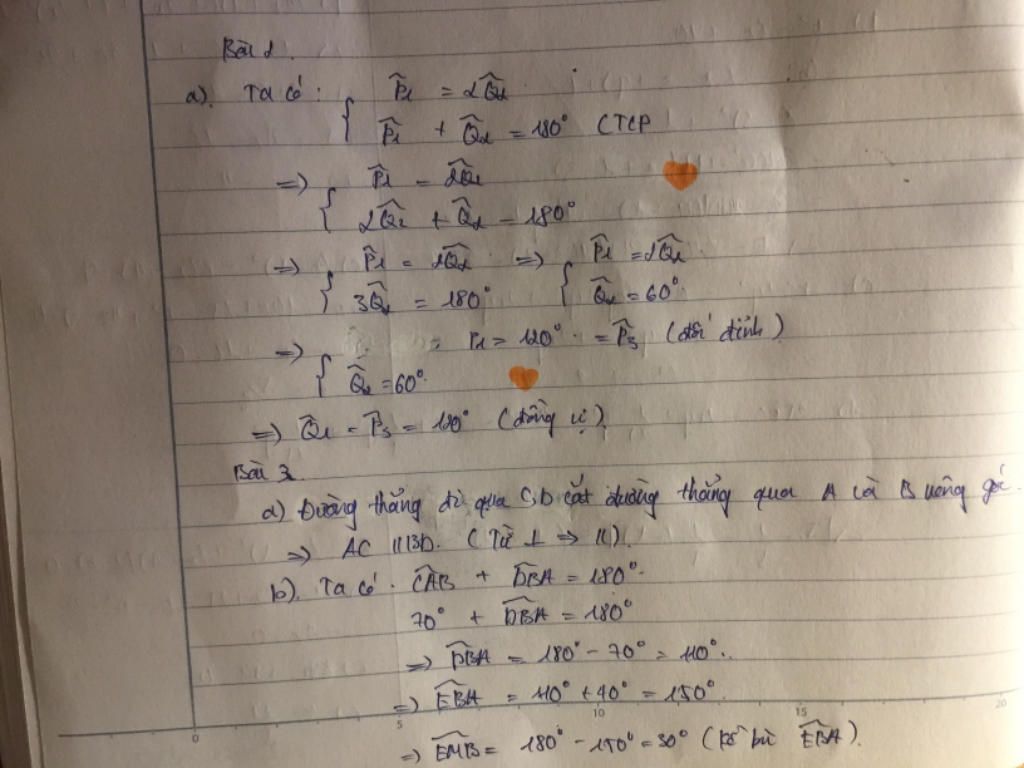 Bài 2.
a). Ta có: { P̂1 = 2Q̂2
P̂1 + Q̂2 = 180° (TCP
=> { P̂1 = 2Q̂2
2Q̂2 + Q̂2 = 180°
=> { P̂1 = 2Q̂2 => { P̂1 = 2Q̂2
3Q̂2 = 180° Q̂2 = 60°
=> { P1 = 120° = P̂3 (đối đỉnh)
Q̂2 = 60°
=> Q̂1 = P̂3 = 120° (đồng vị)
Bài 3.
a) Đường thẳng đi qua C;D cắt đường thẳng qua A và B vuông góc.
=> AC // BD. (Từ ⊥ => //).
b). Ta có. CAB + DBA = 180°.
70° + DBA = 180°
=> DBA = 180° - 70° = 110°.
=> EBA = 110° + 40° = 150°.
=> EMB = 180° - 150° = 30° (kề bù EBA).
0 5 10 15 20